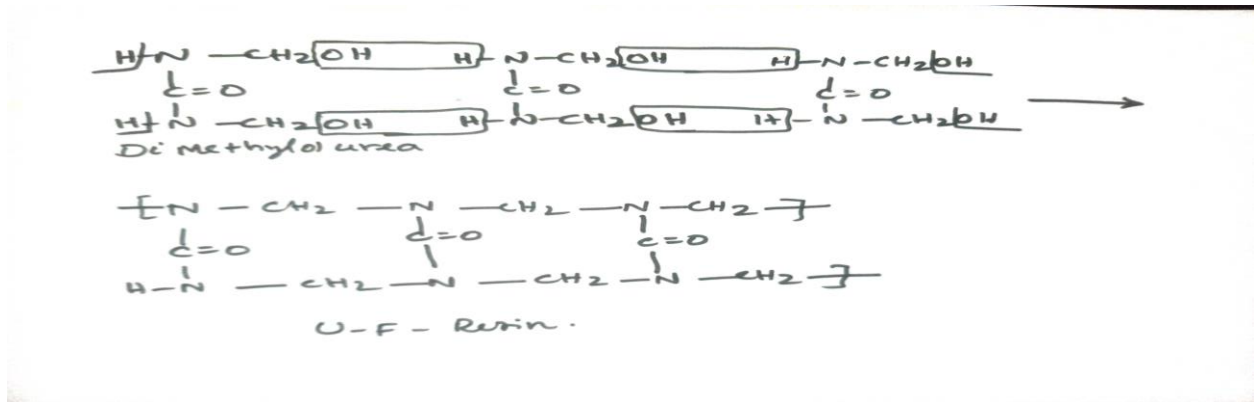 H-N-CH2OH H-N-CH2OH H-N-CH2OH
C=O C=O C=O
H-N-CH2OH H-N-CH2OH H-N-CH2OH
Dimethylol urea
[N-CH2-N-CH2-N-CH2-]
C=O C=O C=O
H-N-CH2-N-CH2-N-CH2-]
U-F-Resin.